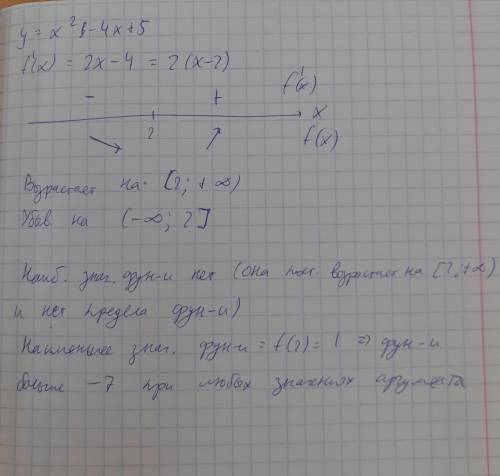 y = x² - 4x + 5
f'(x) = 2x - 4 = 2(x-2)
- + f'(x)
2 x
f(x)
Возрастает на [2; +∞)
Убыв. на (-∞; 2]
Наиб. знач. фун-и нет (она возрастает на [2; +∞)
и нет предела фун-и)
Наименьшее знач. фун-и = f(2) = 1 => фун-и
больше -7 при любых значениях аргумента